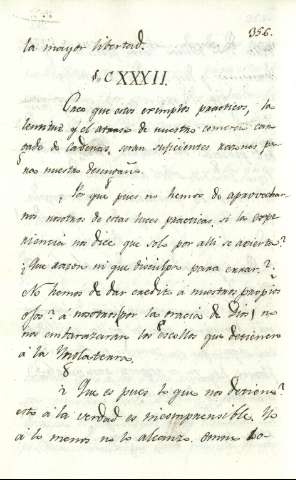 356.
la mayor libertad.
§. CXXXII.
Creo que estos exemplos practicos, la
lentitud y el atraso de nuestro comercio car-
gado de cadenas, seran suficientes razones pa-
ra nuestro desengaño.
¿Por que pues no hemos de aprovechar-
nos nosotros de estas luces practicas, si la expe-
riencia nos dice que solo por alli se acierta?
¿Que razon ni que disculpa para errar?
No hemos de dar credito á nuestros propios
ojos? á nosotros (por la gracia de Dios) no
nos embarazaran los Escollos que detienen
á la Ynglaterra.
¿Que es pues lo que nos detiene?
esto á la verdad es incomprensible. Yo
á lo menos no lo alcanzo.